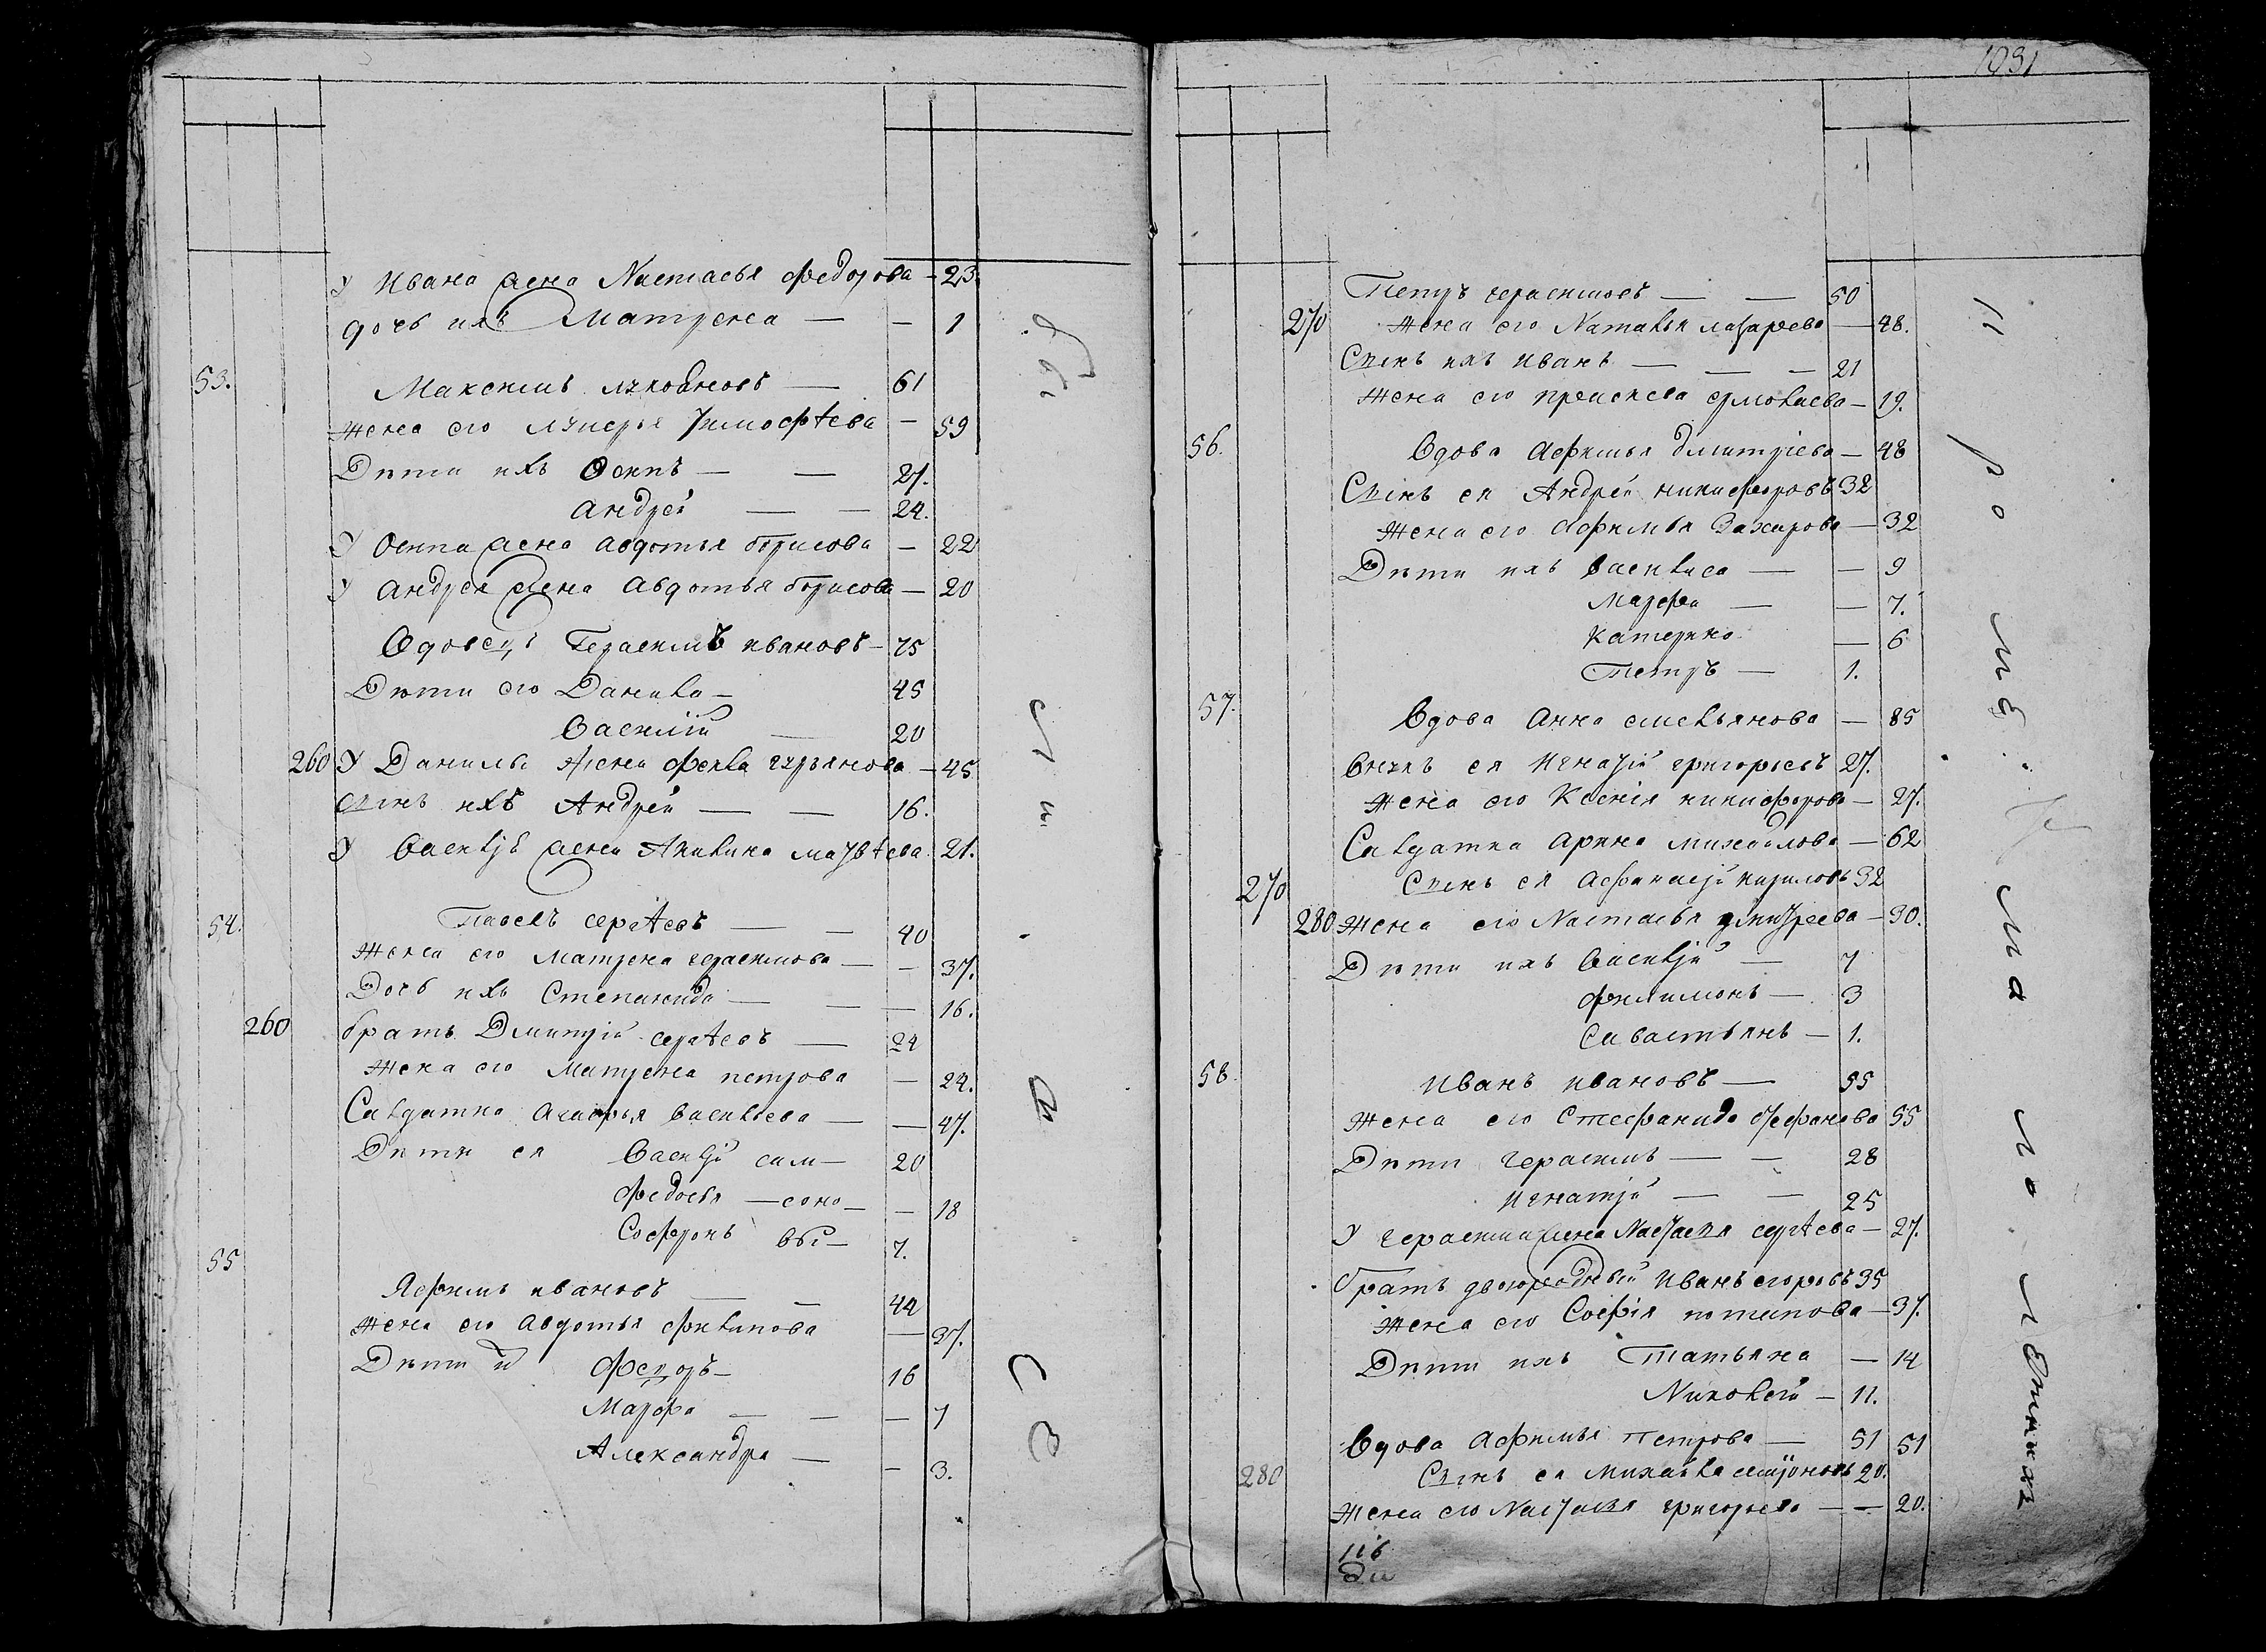 1031
У Ивана жена Настасья Федорова - 23.
дочь ихъ Матрена — — 1
53. Максимъ Яковлевъ — 61
жена его Лукерья Тимофѣева — 59
Дѣти ихъ Осипъ — — 27.
Андрей — — 24.
У Осипа жена Авдотья Борисова — 22
У Андрея жена Авдотья Борисова — 20
Вдовецъ Герасимъ Ивановъ — 75
Дѣти его Данила — 45
Василій — 20
260 У Данилы жена Фекла Гурьянова — 45
сынъ ихъ Андрей — — 16.
У Василья жена Акилина Матвѣева 21.
54. Павелъ Сергѣевъ — — 40
жена его Матрена Герасимова — — 37.
Дочь ихъ Степанида — — — 16.
260 братъ Дмитрій Сергѣевъ — 24
жена его Матрена Петрова — 24.
Салдатка Агафья Васильева — — 47.
Дѣти ея Василій — 20
Федосья — — 18
Софронъ — 7.
55 Яфимъ Ивановъ — — 44
жена его Авдотья Филипова — 37.
Дѣти Федоръ — 16
Марфа — — — 7
Александра — — 3.
Петръ Герасимовъ — — 50
270 жена его Наталья Лазарева — 48.
Сынъ ихъ Иванъ — — — 21
жена его Праскева Ермолаева — 19.
56. Вдова Афимья Дмитріева — 48
Сынъ ея Андрей Никифоровъ 32
жена его Афимья Захарова — 32
Дѣти ихъ Василиса — — 9
Марфа — — 7.
Катерина — 6
Петръ — 1.
57. Вдова Анна Емельянова — 85
Внукъ ея Игнатій Григорьевъ 27.
жена его Ксенія Никифорова — 27.
Салдатка Арина Михайлова — 62
270 Сынъ ея Афанасій Кириловъ 32
280 жена его Настасья Дмитреева — 30.
Дѣти ихъ Василій — 7
Филимонъ — 3
Савастьянъ — 1.
58. Иванъ Ивановъ — 55
жена его Стефанида Феофанова 55
Дѣти Герасимъ — — 28
Игнатій — — 25
У Герасима жена Настасья Сергѣева — 27.
братъ двоюродный Иванъ Егоровъ 35
жена его Софія Потапова — 37.
Дѣти ихъ Татьяна — 14
Николай — 11.
Вдова Афимья Петрова — 51 51
280 Сынъ ея Михайла 20.
жена его Настасья Григорьева — — 20.